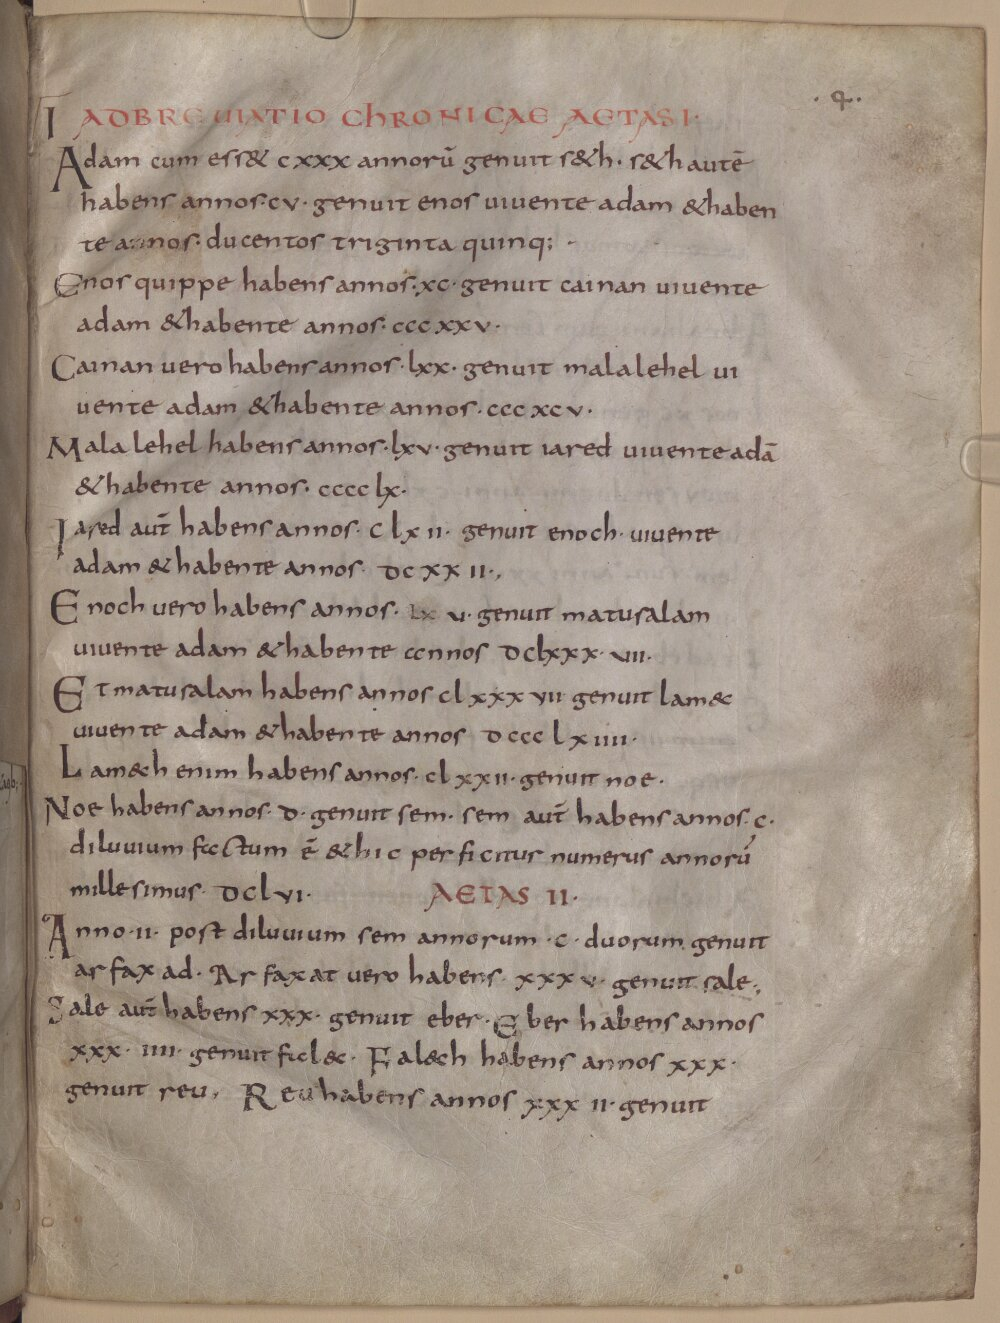 ·4·
I ADBREUIATIO ChRONICAE AETAS I·
Adam cum ess& cxxx annorū genuit s&h· s&h autē
habens annos·cv· genuit enos uiuente adam &haben
te annos· ducentos triginta quinq;
Enos quippe habens annos·xc· genuit cainan uiuente
adam &habente annos· cccxxv·
Cainan uero habens annos·lxx· genuit malalehel ui
uente adam &habente annos·cccxcv·
Malalehel habens annos·lxv· genuit iared uiuente adā
&habente annos· cccclx·
Iared aut̄ habens annos· clxii· genuit enoch· uiuente
adam &habente annos· dcxxii·,
Enoch uero habens annos· lxv· genuit matusalam
uiuente adam &habente annos dclxxx·vii·
Et matusalam habens annos clxxxvii genuit lam&c
uiuente adam &habente annos dccclxiiii·
Lam&ch enim habens annos· clxxii· genuit noe·
Noe habens annos· d· genuit sem· sem aut̄ habens annos·c·
diluuium factum ē &hic perficitur numerus annorū
millesimus· dclvi· AETAS II·
Anno·ii· post diluuium sem annorum·c· duorum genuit
arfaxad· Arfaxat uero habens· xxxv· genuit sale·,
Sale aut̄ habens xxx· genuit eber· Eber habens annos
xxx·iiii· genuit falec· Fal&ch habens annos xxx·
genuit reu, Reu habens annos xxxii· genuit